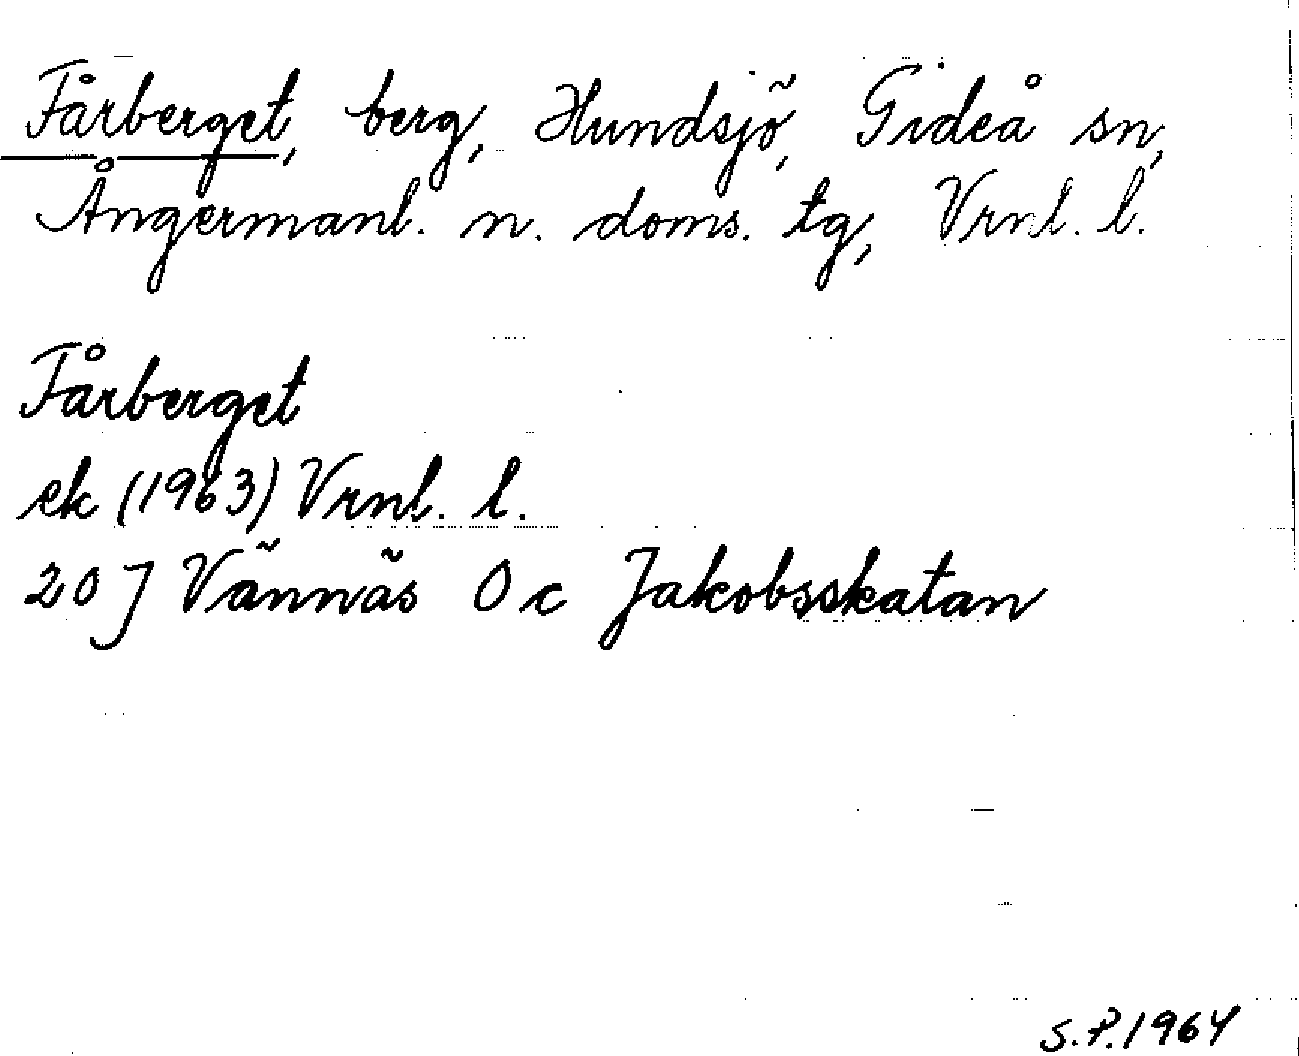 Fårberget, berg, Hundsjö, Gideå sn,
Ångermanl. n. doms. tg, Vrnl. l.
Fårberget
ek (1963) Vrnl. l.
20 J Vännäs O c Jakobsskatan
S.P. 1964